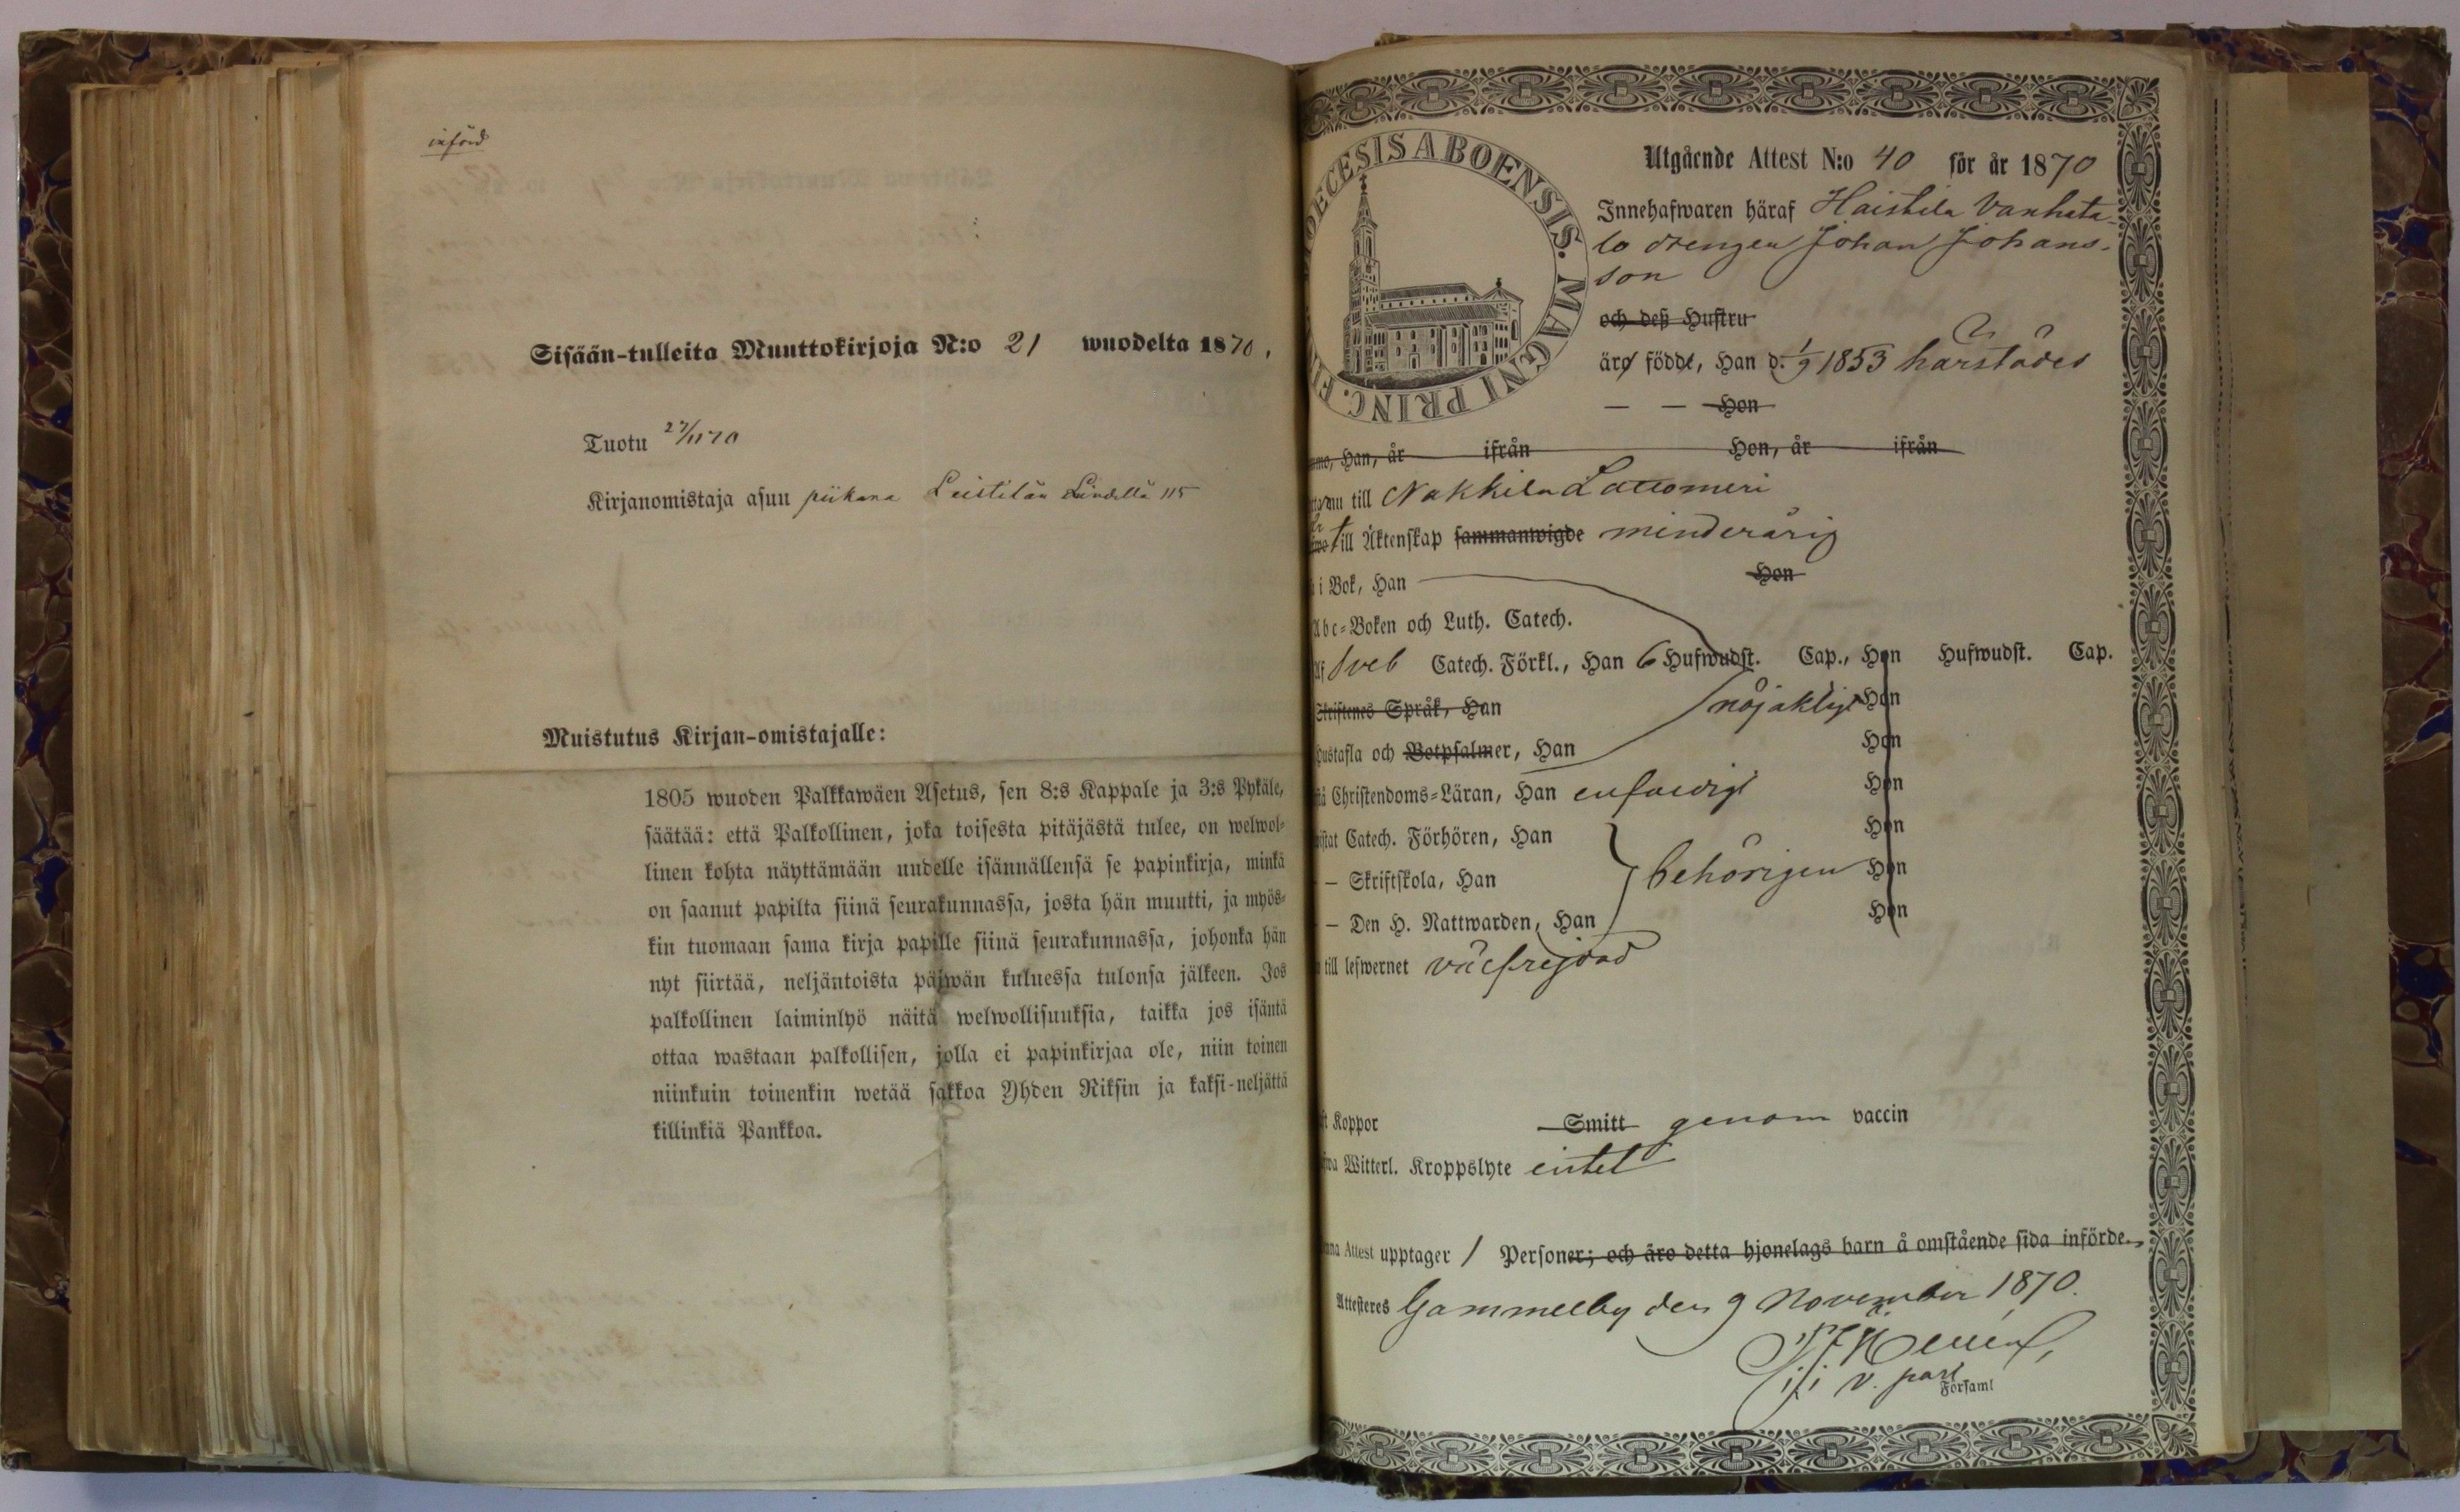 införd
Sisään-tulleita Muuttokirjoja N:o 21 wuodelta 1870.
Tuotu 27/11 70
Kirjanomistaja asuu piikana Leistilän Lindellä 115
Muistutus Kirjan-omistajalle:
1805 wuoden Palkkawäen Asetus, sen 8:s Kappale ja 3:s Pykäle,
säätää: että Palkollinen, joka toisesta pitäjästä tulee, on welwol-
linen kohta näyttämään uudelle isännällensä se papinkirja, minkä
on saanut papilta siinä seurakunnassa, josta hän muutti, ja myös-
kin tuomaan sama kirja papille siinä seurakunnassa, johonka hän
nyt siirtää, neljäntoista päiwän kuluessa tulonsa jälkeen. Jos
palkollinen laiminlyö näitä welwollisuuksia, taikka jos isäntä
ottaa wastaan palkollisen, jolla ei papinkirjaa ole, niin toinen
niinkuin toinenkin wetää sakkoa Yhden Riksin ja kaksi-neljättä
killinkiä Pankkoa.
DIOECESIS ABOENSIS. MAGNI PRINC. FI
Utgående Attest N:o 40 för år 1870
Innehafwaren häraf Haistila Vanhata-
lo drengen Johan Johans-
son
och deß Hustru
äro födde, Han d. 1/9 1853 härstädes
— — Hon
Han, år ifrån Hon, år ifrån
nu till Nakkila Lattomeri
till Äktenskap sammanwigde minderårig
i Bok, Han Hon
Abc-Boken och Luth. Catech.
Af Sveb Catech. Förkl., Han 6 Hufwudst. Cap., Hon Hufwudst. Cap.
Skriftenes Språk, Han nöjaktigt Hon
Hustafla och Botpsalmer, Han Hon
Christendoms-Läran, Han enfaldigt Hon
Catech. Förhören, Han Hon
— Skriftskola, Han behörigen Hon
— Den H. Nattwarden, Han Hon
till lefwernet välfrejdad
Koppor Smitt genom vaccin
Witterl. Kroppslyte intet
Attest upptager 1 Personer; och äro detta hjonelags barn å omstående sida införde.
Attesteres Gammelby den 9 November 1870.
v. past
Församl